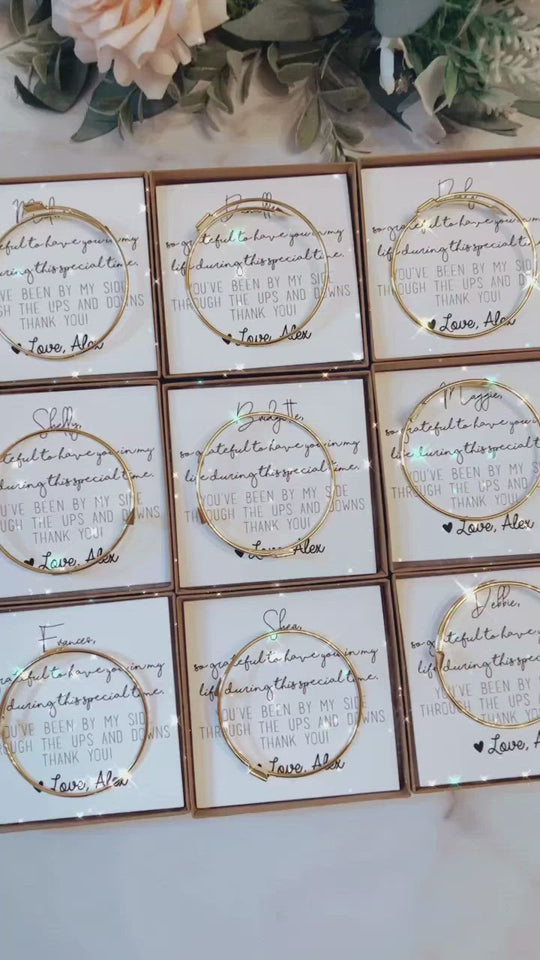 eful to have you in my
uring this special time.
VE BEEN BY MY SIDE
GH THE UPS AND DOWNS
THANK YOU!
Love, Alex
so grateful to have you in my
life during this special time.
YOU'VE BEEN BY MY SIDE
THROUGH THE UPS AND DOWNS
THANK YOU!
Love, Alex
so grateful to have you in my
life during this special time.
YOU'VE BEEN BY MY SID
THROUGH THE UPS AND D
THANK YOU!
Love, Alex
Shelly,
teful to have you in my
during this special time.
VE BEEN BY MY SIDE
UGH THE UPS AND DOWNS
THANK YOU!
Love, Alex
Bridgette,
so grateful to have you in my
life during this special time.
YOU'VE BEEN BY MY SIDE
THROUGH THE UPS AND DOWNS
THANK YOU!
Love, Alex
Maggie,
so grateful to have you in
life during this special
YOU'VE BEEN BY MY S
THROUGH THE UPS AND
THANK YOU!
Love, Alex
Frances,
rateful to have you in my
during this special time.
VE BEEN BY MY SIDE
OUGH THE UPS AND DOWNS
THANK YOU!
Love, Alex
Shea,
so grateful to have you in my
life during this special time.
YOU'VE BEEN BY MY SIDE
THROUGH THE UPS AND DOWNS
THANK YOU!
Love, Alex
Debbie,
so grateful to have you
life during this spec
YOU'VE BEEN BY M
THROUGH THE UPS AN
THANK YOU
Love, A